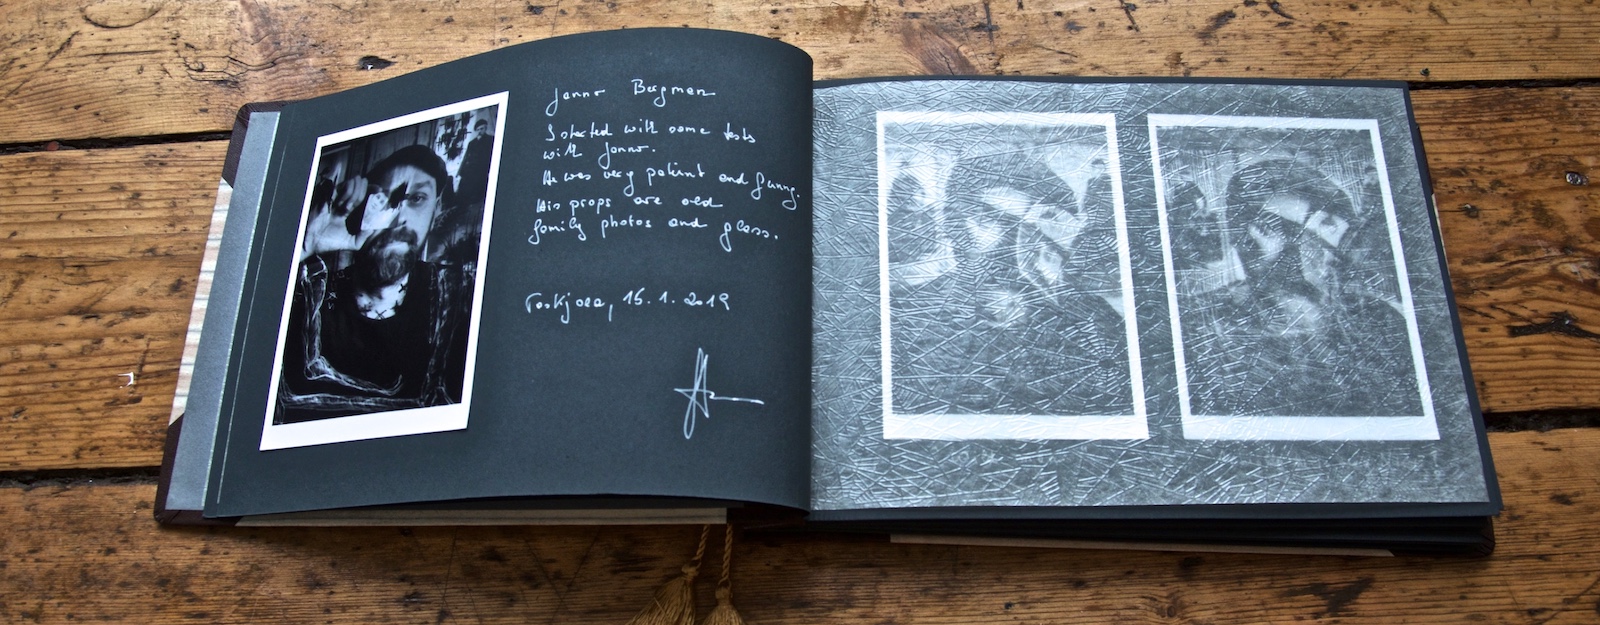 Janno Bergman
I started with some tests
with Janno.
He was very patient and funny.
His props are old
family photos and glass.
15.1.2019